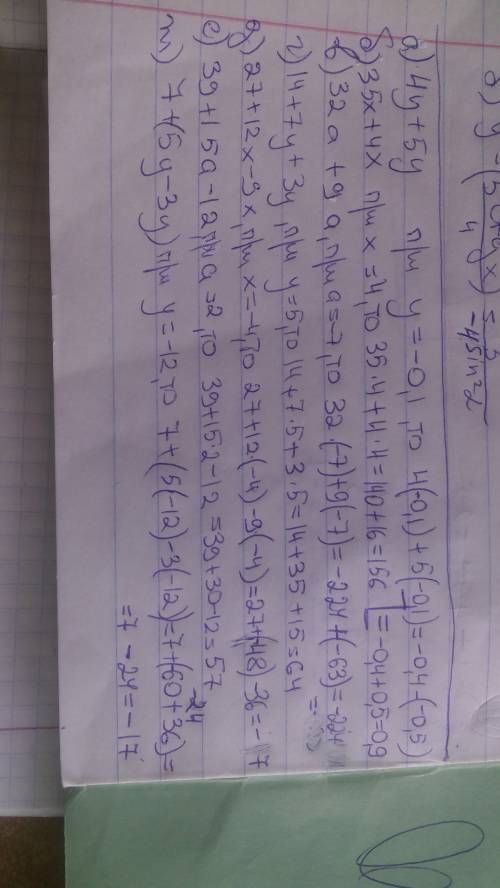 а) 4y+5y при y=-0,1 то 4(-0,1)+5(-0,1)=-0,4-(-0,5)
=-0,4+0,5-0,9
б) 35x+4x при x=4, то 35·4+4·4=140+16=156
в) 32a+9a, при a=-7, то 32·(-7)+9(-7)=-224+(-63)=-224
г) 14+7y+3y при y=5, то 14+7·5+3·5=14+35+15=64
д) 27+12x-9x, при x=-4, то 27+12(-4)-9(-4)=27+(-48)-36=-17
е) 39+15a-12, при a=2, то 39+15·2-12=39+30-12=57
-24
ж) 7+(5y-3y) при y=-12, то 7+(5(-12)-3(-12)=7+(60+36)=
=7-24=-17